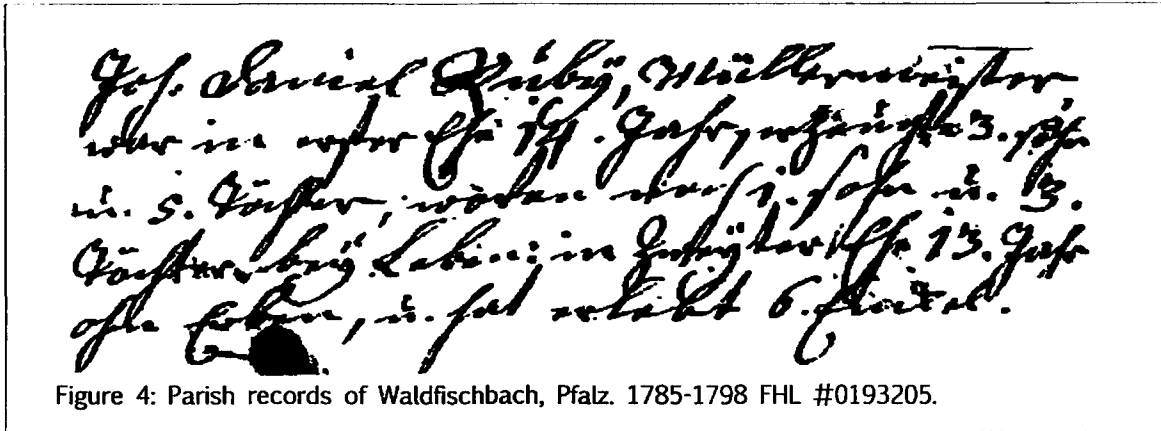 Joh. Daniel Rübÿ, Müllermeister
war in erster Ehe 14. Jahr, erzeugte 3. söhn
u. 5. Töchter, woven noch 1. sohn u. 3.
Töchter beÿ Leben: in Zweÿter Ehe 13. Jahr
ohn Erben, u. hat erlebt 6. Einkel.
Figure 4: Parish records of Waldfischbach, Pfalz. 1785-1798 FHL #0193205.